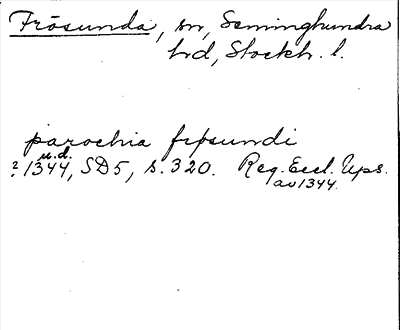 Frösunda, sn, Seminghundra
hd, Stockh. l.
parochia frøsundi
u.d.
? 1344, SD5, s. 320. Reg. Eccl. Ups.
av 1344.